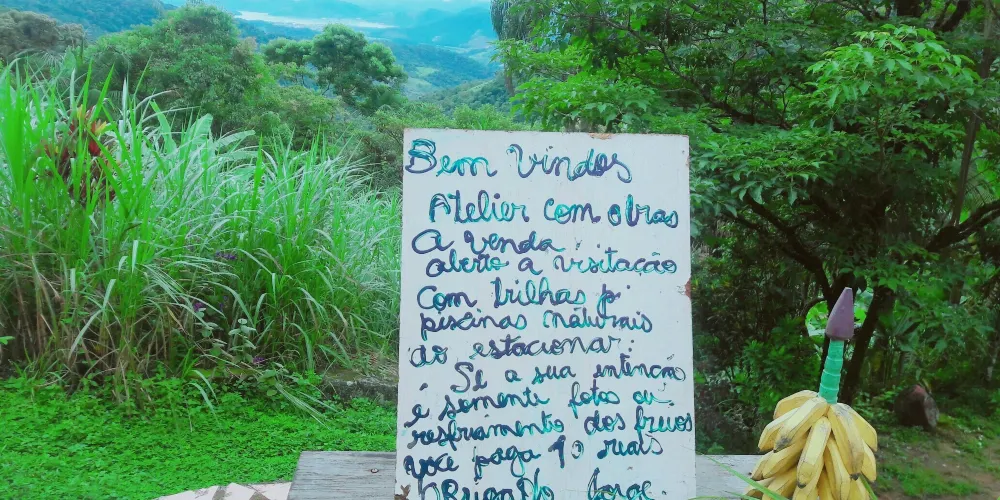 Bem Vindos
Atelier com obras
a venda.
aberto a visitação
com trilhas p.
piscinas naturais
ao estacionar:
Se a sua intenção
é somente fotos ou
resfriamento dos freios
você paga 10 reais
Jorge.